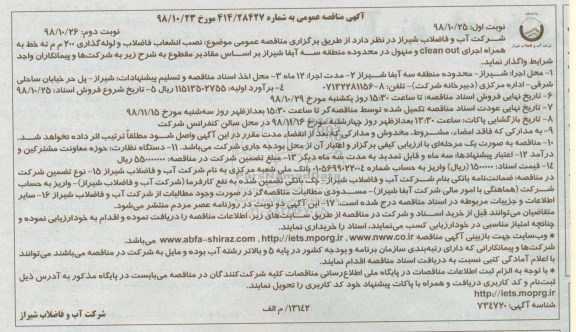 آگهی مناقصه عمومی به شماره ۴۱۴/۲۸۴۲۷ مورخ ۹۸/۱۰/۲۳
نوبت اول: ۹۸/۱۰/۲۵ نوبت دوم: ۹۸/۱۰/۲۶
شرکت آب و فاضلاب شیراز در نظر دارد از طریق برگزاری مناقصه عمومی موضوع: نصب انشعاب فاضلاب و لوله‌گذاری ۲۰۰ م م ته خط به
همراه اجرای clean out و منهول در محدوده منطقه سه آبفا شیراز بر اساس مقادیر مقطوع به شرح زیر به شرکت‌ها و پیمانکاران واجد
شرایط واگذار نماید.
۱- محل اجرا: شیراز- محدوده منطقه سه آبفا شیراز ۲- مدت اجرا: ۱۲ ماه ۳- محل اخذ اسناد مناقصه و تسلیم پیشنهادات: شیراز- پل در خیابان ساحلی
شرقی- اداره مرکزی (دبیرخانه شرکت)- تلفن: ۸-۰۷۱۳۲۲۸۱۱۵۶ ۴- برآورد اولیه: ۱۱۵۱۳۵۰۲۷۵۵ ریال ۵- تاریخ شروع فروش اسناد: ۹۸/۱۰/۲۵
۶- تاریخ نهایی فروش اسناد مناقصه: تا ساعت ۱۵:۳۰ روز یکشنبه مورخ ۹۸/۱۰/۲۹
۷- تاریخ نهایی عودت اسناد مناقصه تکمیل شده توسط مناقصه‌گر تا ساعت ۱۵:۳۰ بعدازظهر روز سه‌شنبه مورخ ۹۸/۱۱/۱۵
۸- تاریخ بازگشایی پاکات: ساعت ۱۳:۳۰ بعدازظهر روز چهارشنبه مورخ ۹۸/۱۱/۱۶ در محل سالن کنفرانس شرکت
۹- به مدارکی که فاقد امضاء، مشروط، مخدوش و مدارکی که بعد از انقضاء مدت مقرر در این آگهی واصل شود مطلقاً ترتیب اثر داده نخواهد شد.
۱۰- مناقصه به صورت یک مرحله‌ای با ارزیابی کیفی برگزار و اعتبار آن از محل بودجه جاری شرکت می‌باشد. ۱۱- دستگاه نظارت: حوزه معاونت مشترکین و
درآمد ۱۲- اعتبار پیشنهادها: سه ماه و قابل تمدید به مدت سه ماه دیگر ۱۳- مبلغ تضمین شرکت در مناقصه: ۵۵۰۰۰۰۰۰۰ ریال
۱۴- قیمت اسناد: ۱۵۰۰۰۰۰ (ریال) واریز به حساب شماره ۰۱۰۵۶۹۹۰۲۲۰۰۴ بانک ملی شعبه مرکزی به نام شرکت آب و فاضلاب شیراز ۱۵- نوع تضمین شرکت
در مناقصه: ضمانت‌نامه بانکی بنام شرکت آب و فاضلاب شیراز- چک بانکی تضمین شده به نفع کارفرما (شرکت آب و فاضلاب شیراز)- واریز به حساب
شرکت (هماهنگی با امور مالی شرکت آبفا شیراز)- مسدودی مطالبات مناقصه‌گر در صورت وجود مطالبات از شرکت آب و فاضلاب شیراز ۱۶- سایر
اطلاعات و جزییات مربوطه در اسناد مناقصه درج شده است. ۱۷- این آگهی دو نوبت در روزنامه عصر مردم منتشر می‌شود.
متقاضیان می‌توانند قبل از خرید اسناد و شرکت در مناقصه از طریق سایت‌های زیر، اطلاعات مناقصه را دریافت نموده و اقدام به خودارزیابی نموده و
چنانچه امتیاز مناسبی در خودارزیابی کسب می‌نمایند، اسناد را خریداری نمایند.
* وب‌سایت جهت بازبینی آگهی مناقصه www.abfa-shiraz.com , http://iets.mporg.ir , www.nww.co.ir می‌باشد.
شرکت‌ها و پیمانکارانی که دارای رتبه‌بندی سازمان برنامه و بودجه کشور در پایه ۵ و بالاتر رشته آب بوده و مایل به شرکت در مناقصه می‌باشند می‌توانند
با اعلام آمادگی کتبی نسبت به دریافت اسناد مناقصه اقدام نمایند.
* با توجه به الزام ثبت اطلاعات مناقصات در پایگاه ملی اطلاع‌رسانی مناقصات کلیه شرکت‌کنندگان در مناقصه می‌بایست در پایگاه مذکور به آدرس ذیل
ثبت‌نام و کد کاربری دریافت و همراه با پاکات پیشنهاد خود کد کاربری را تحویل نمایند.
http://iets.mporg.ir
شناسه آگهی: ۷۳۴۷۲۰ ۱۳۱۴۲/ م الف شرکت آب و فاضلاب شیراز